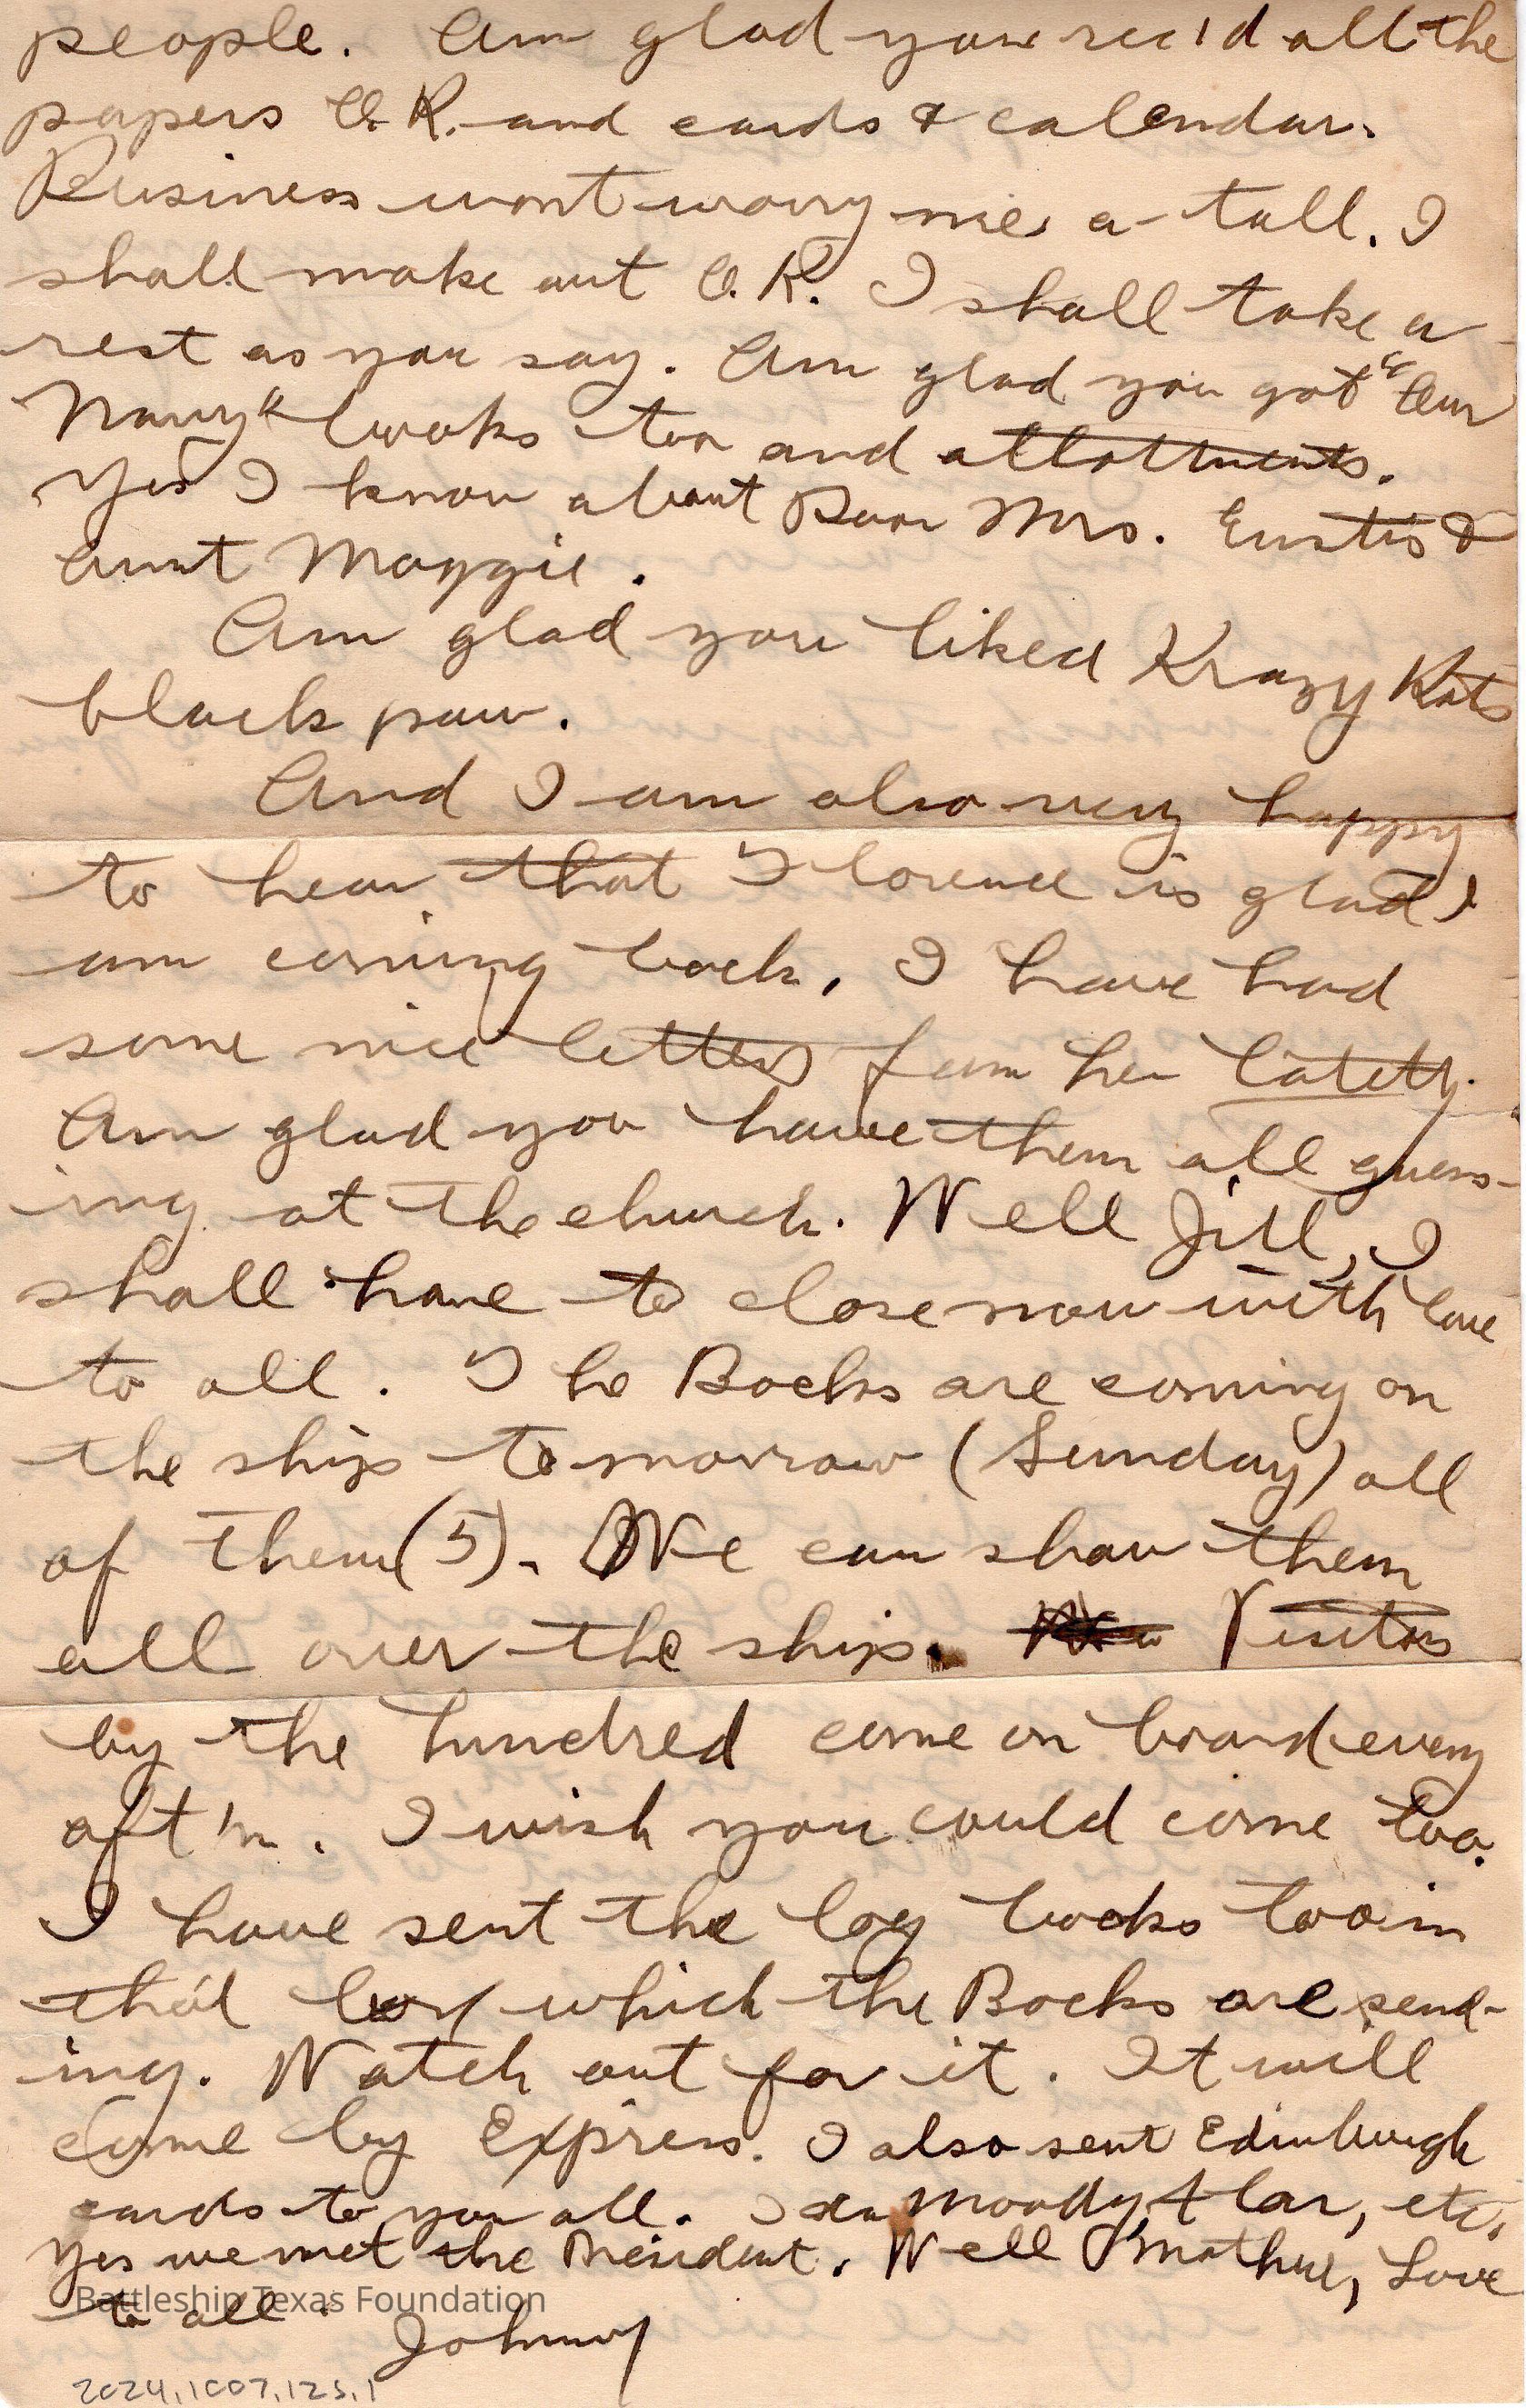 people. Am glad you rec'd all the
papers O.K. and cards & calendar.
Business wont worry me a-tall. I
shall make out O.K. I shall take a
rest as you say. Am glad you got "Our
Navy" books too and allotments.
Yes I know about Poor Mrs. Eustis &
Aunt Maggie.
Am glad you liked Krazy Kats
black paw.
And I am also very happy
to hear that Florence is glad I
am coming back. I have had
some nice letters from her lately.
Am glad you have them all guess-
ing at the church. Well Jill, I
shall have to close now with love
to all. The Bocks are coming on
the ship tomorrow (Sunday) all
of them (5). We can show them
all over the ship. Visitors
by the hundred come on board every
aft'n. I wish you could come too.
I have sent the log books too in
that box which the Bocks are send-
ing. Watch out for it. It will
come by Express. I also sent Edinburgh
cards to you all. Moody, etc.
Yes we met the President. Well Mother, Love
to all. Johnny
Battleship Texas Foundation
2024.1007.125.1